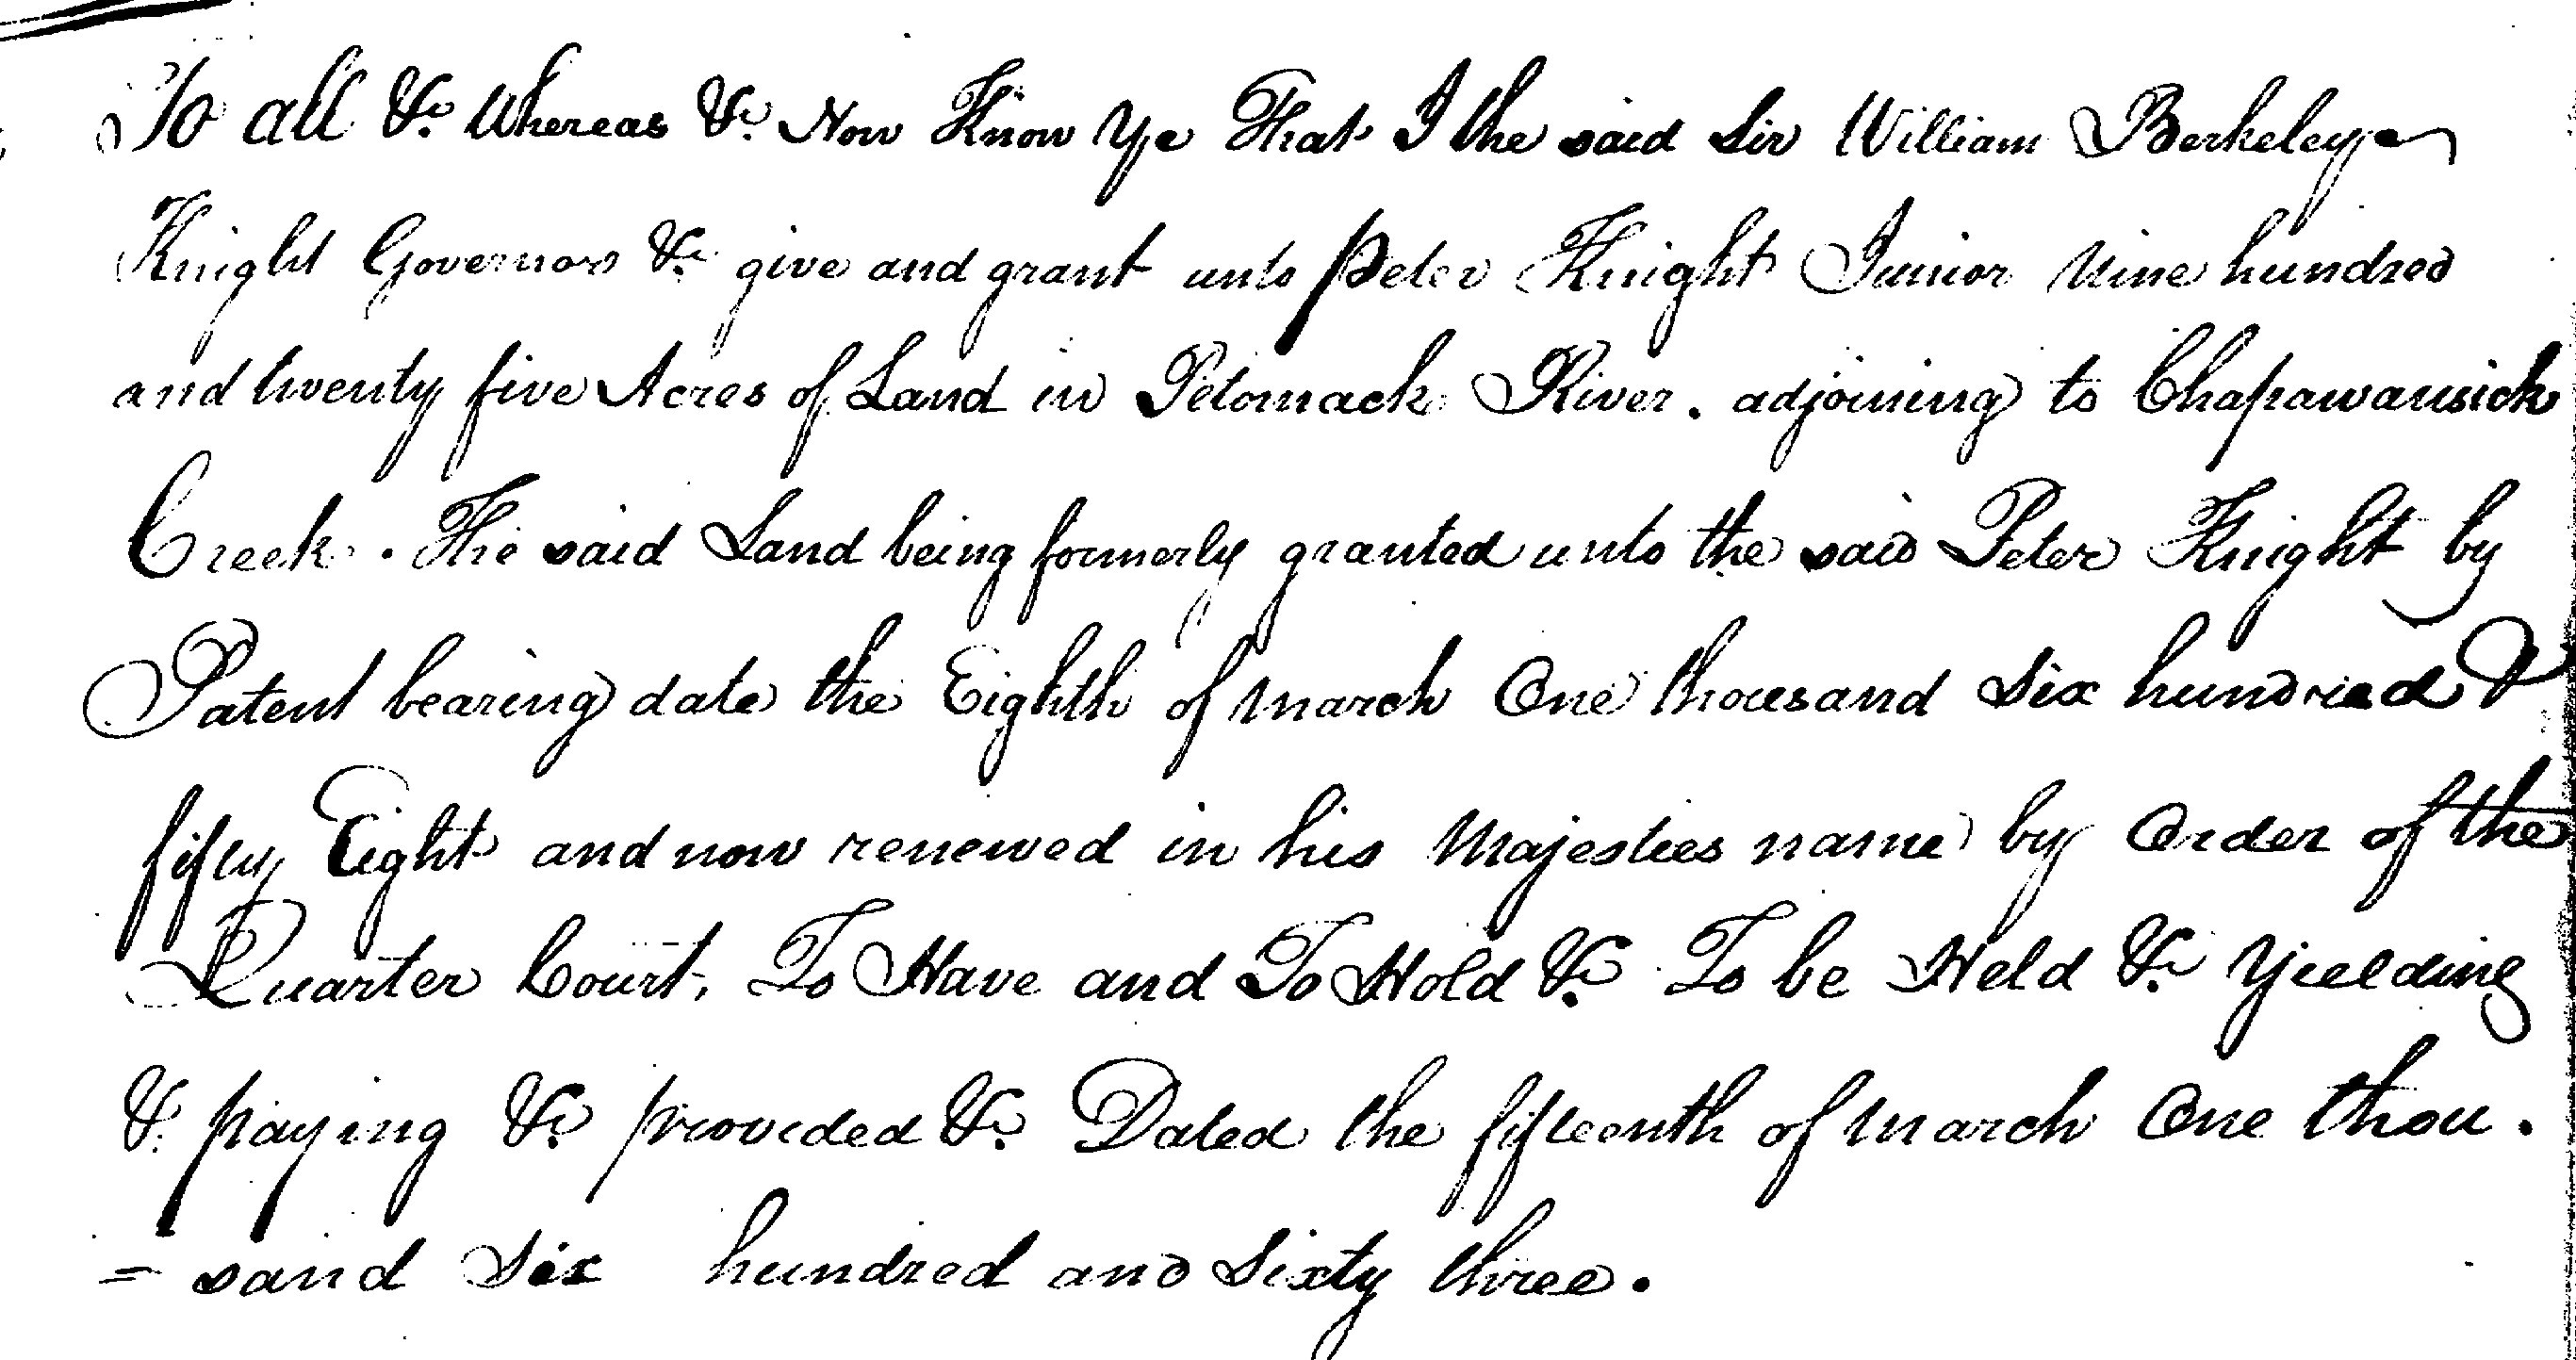 To all &c. Whereas &c. Now Know Ye That I the said Sir William Berkeley
Knight Governor &c. give and grant unto Peter Knight Junior Nine hundred
and twenty five Acres of Land in Petomack River. adjoining to Chapawansick
Creek. The said Land being formerly granted unto the said Peter Knight by
Patent bearing date the Eighth of March One thousand Six hundred &
fifty Eight and now renewed in his Majesties name by Order of the
Quarter Court, To Have and To Hold &c. To be Held &c. Yielding
&. paying &c. provided &c. Dated the fifteenth of March One thou.
= sand Six hundred and Sixty three.